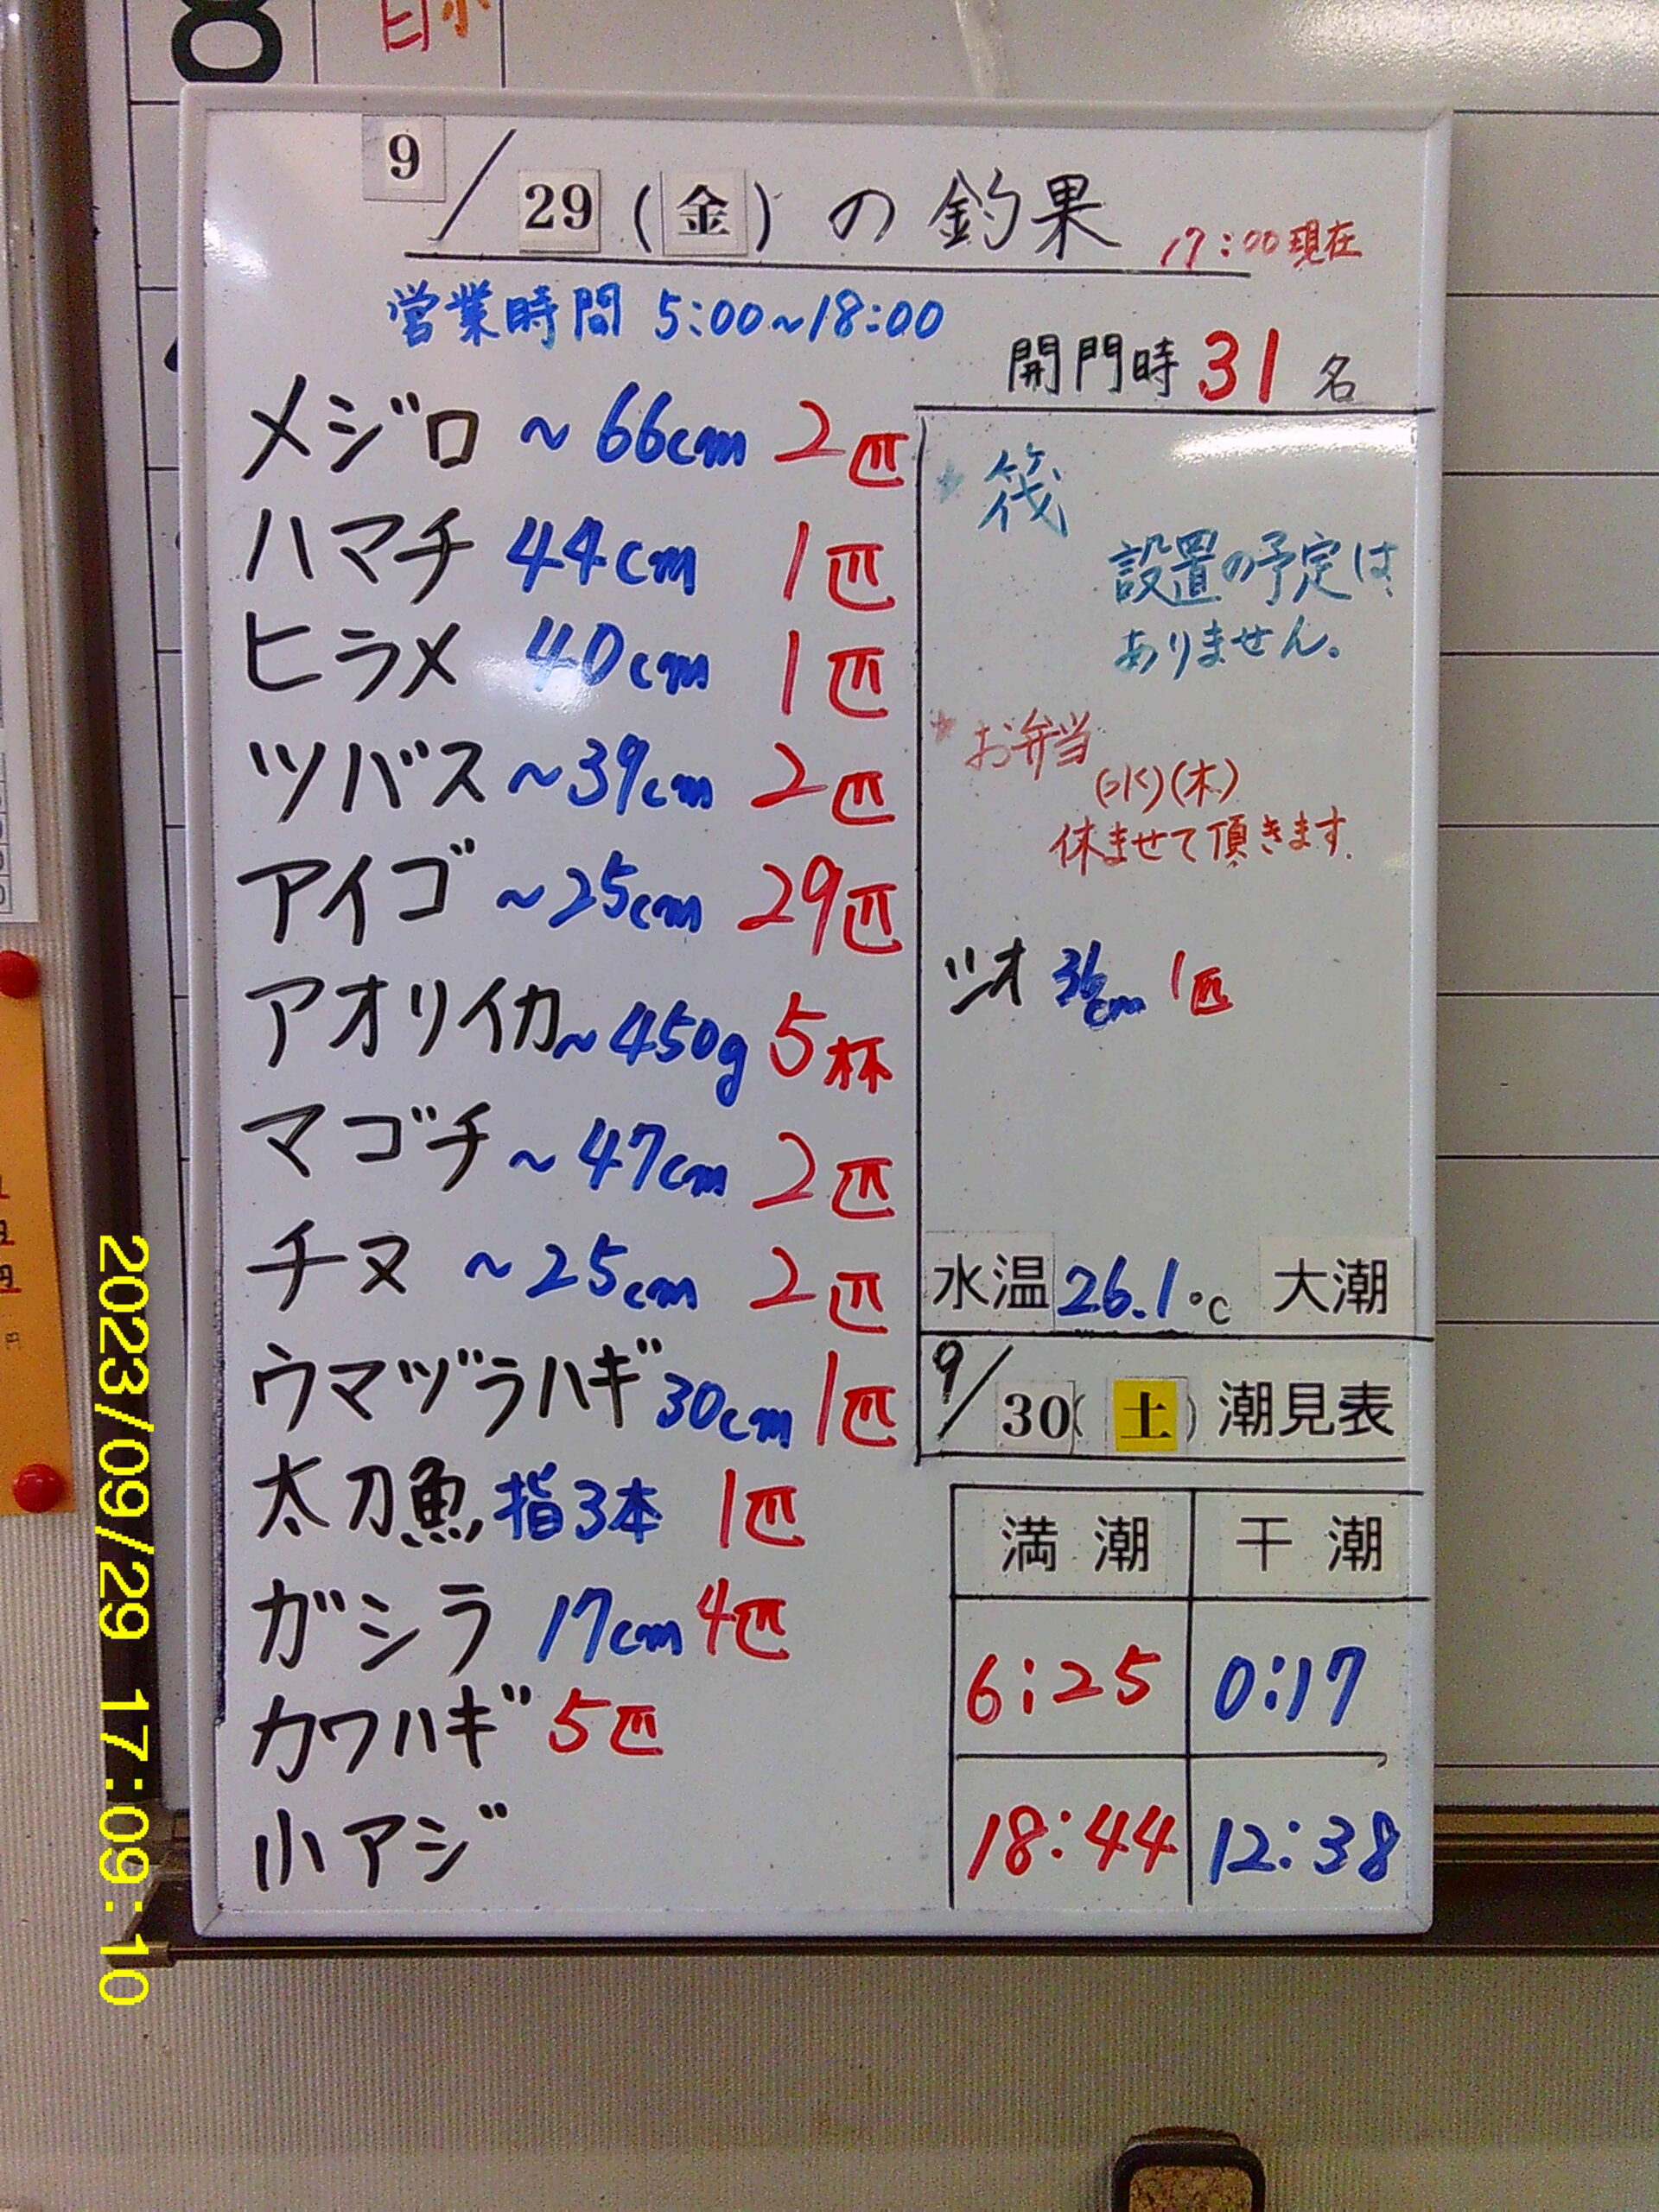 9/29(金)の釣果 17:00現在
営業時間 5:00~18:00
開門時 31名
メジロ ~66cm 2匹
ハマチ 44cm 1匹
ヒラメ 40cm 1匹
ツバス ~39cm 2匹
アイゴ ~25cm 29匹
アオリイカ ~450g 5杯
マゴチ ~47cm 2匹
チヌ ~25cm 2匹
ウマヅラハギ 30cm 1匹
太刀魚 指3本 1匹
ガシラ 17cm 4匹
カワハギ 5匹
小アジ
*筏
設置の予定は
ありません。
*お弁当
(水)(木)
休ませて頂きます.
ツオ 36cm 1匹
水温 26.1℃ 大潮
9/30(土)潮見表
満潮 干潮
6:25 0:17
18:44 12:38
2023/09/29 17:09:10